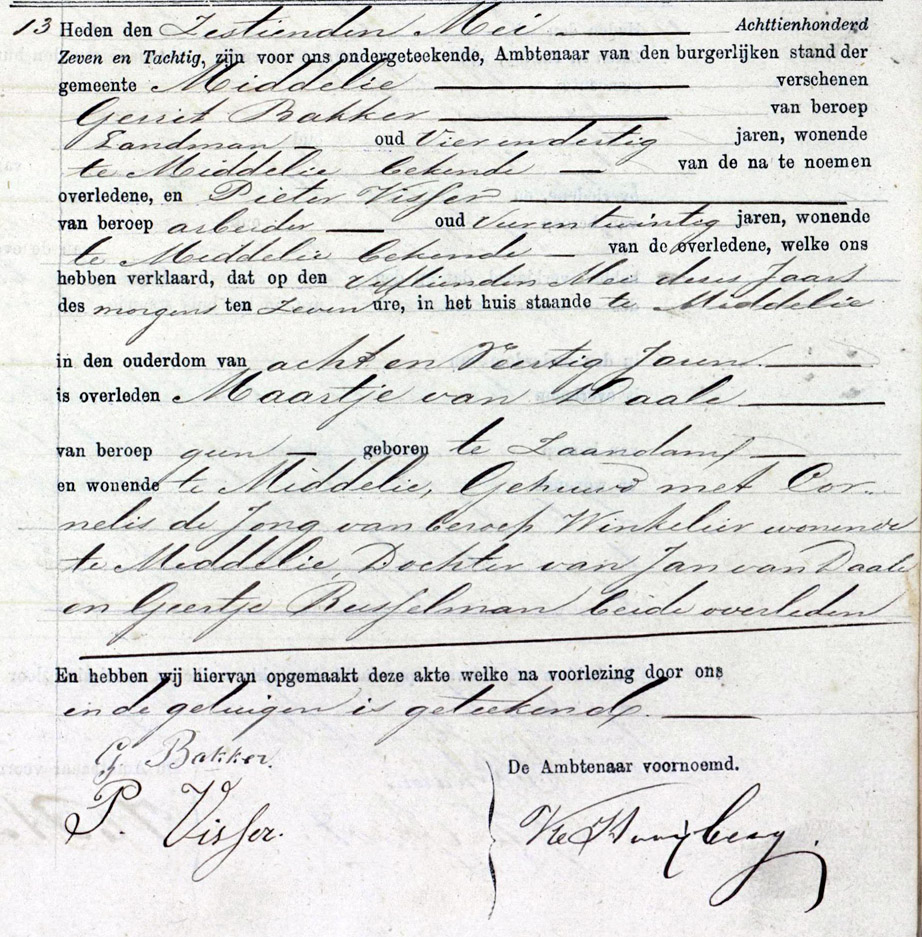 13 Heden den Zestienden Mei Achttienhonderd
Zeven en Tachtig, zijn voor ons ondergeteekende, Ambtenaar van den burgerlijken stand der
gemeente Middelie verschenen
Gerrit Bakker van beroep
Landman oud Vier en dertig jaren, wonende
te Middelie bekende van de na te noemen
overledene, en Pieter Visser
van beroep arbeider oud Vier en twintig jaren, wonende
te Middelie bekende van de overledene, welke ons
hebben verklaard, dat op den vijftienden Mei dezes Jaars
des morgens ten Zeven ure, in het huis staande te Middelie
in den ouderdom van acht en Veertig Jaren
is overleden Maartje van Daale
van beroep geen geboren te Zaandam
en wonende te Middelie, Gehuwd met Cor-
nelis de Jong van beroep Winkelier wonende
te Middelie, Dochter van Jan van Daale
en Geertje Russelman beide overleden
En hebben wij hiervan opgemaakt deze akte welke na voorlezing door ons
en de getuigen is geteekend.
G Bakker.
De Ambtenaar voornoemd.
P. Visser.